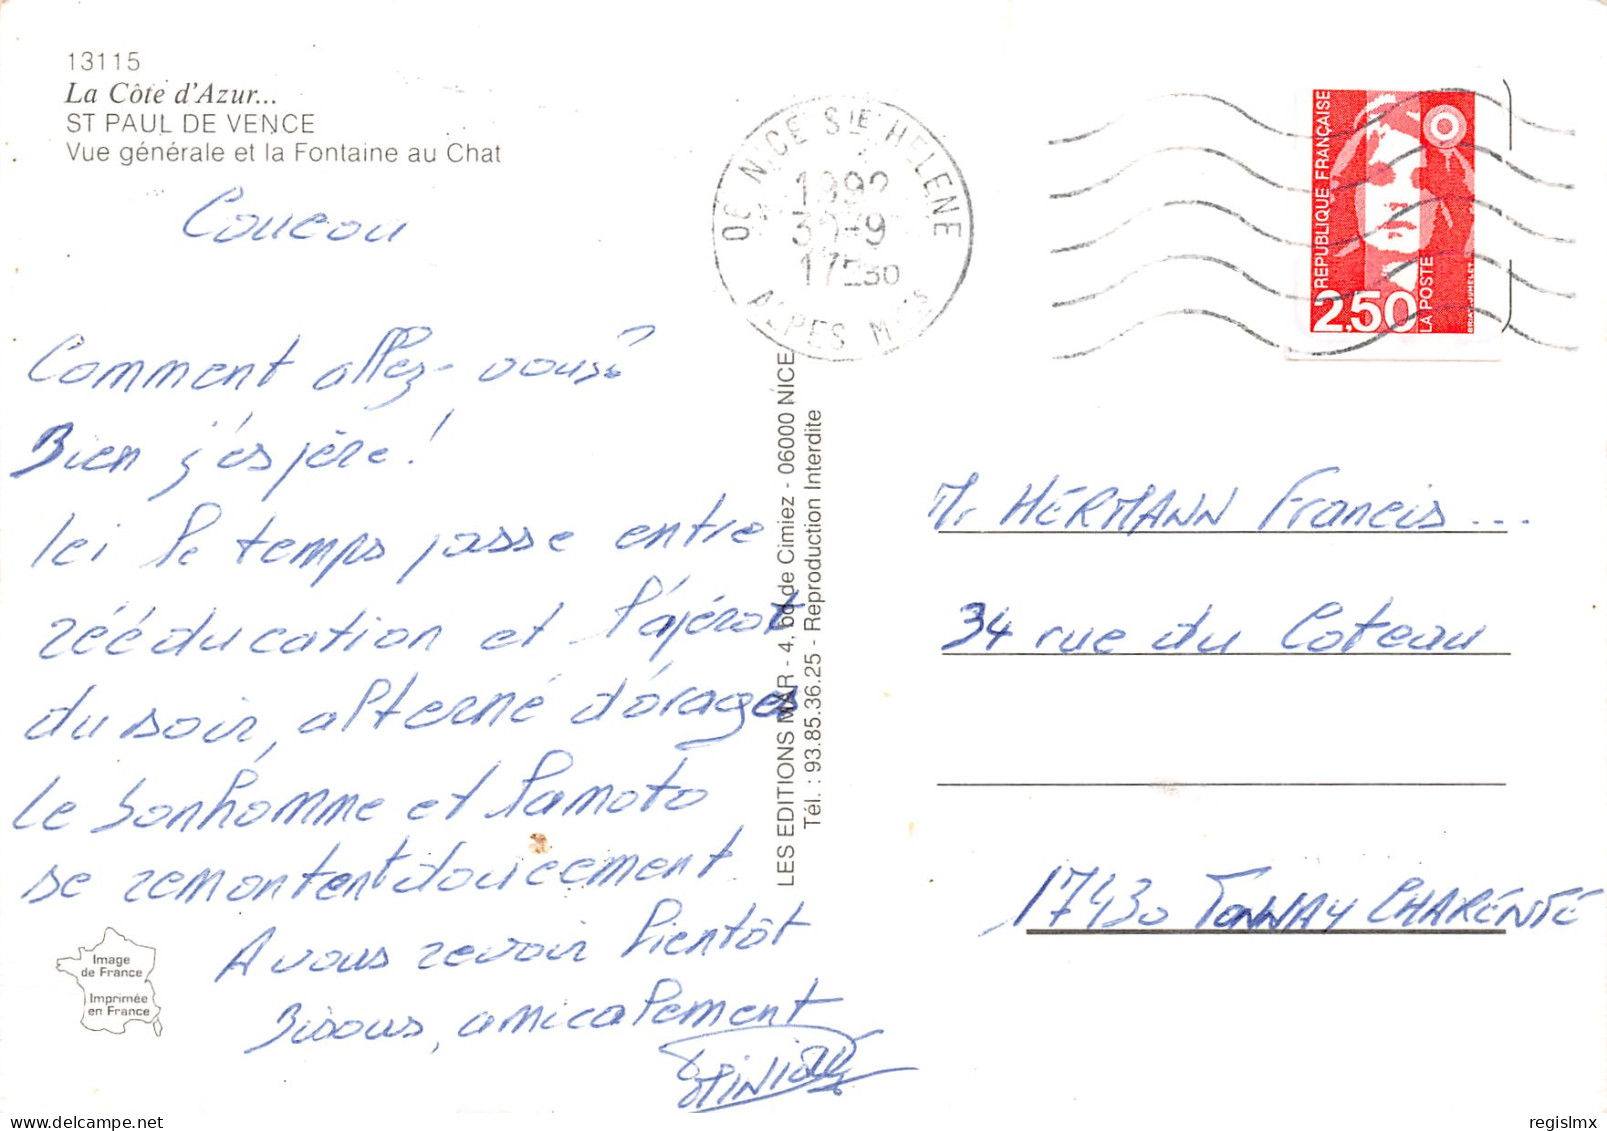 13115
La Côte d'Azur...
ST PAUL DE VENCE
Vue générale et la Fontaine au Chat
Coucou
Comment allez-vous?
Bien j'espère!
Ici le temps passe entre
rééducation et l'apérot
du soir, alterné d'orages
Le bonhomme et la moto
se remontent doucement
A vous revoir bientôt
Bisous, amicalement
Image
de France
Imprimée
en France
LES EDITIONS MAR - 4, bd de Cimiez - 06000 NICE
Tél. : 93.85.36.25 - Reproduction Interdite
06 NICE STE HELENE
1992
30-9
17H30
ALPES MMES
REPUBLIQUE FRANÇAISE
2,50
LA POSTE
Mr HERMANN Francis...
34 rue du Coteau
17430 TONNAY CHARENTE
regislmx